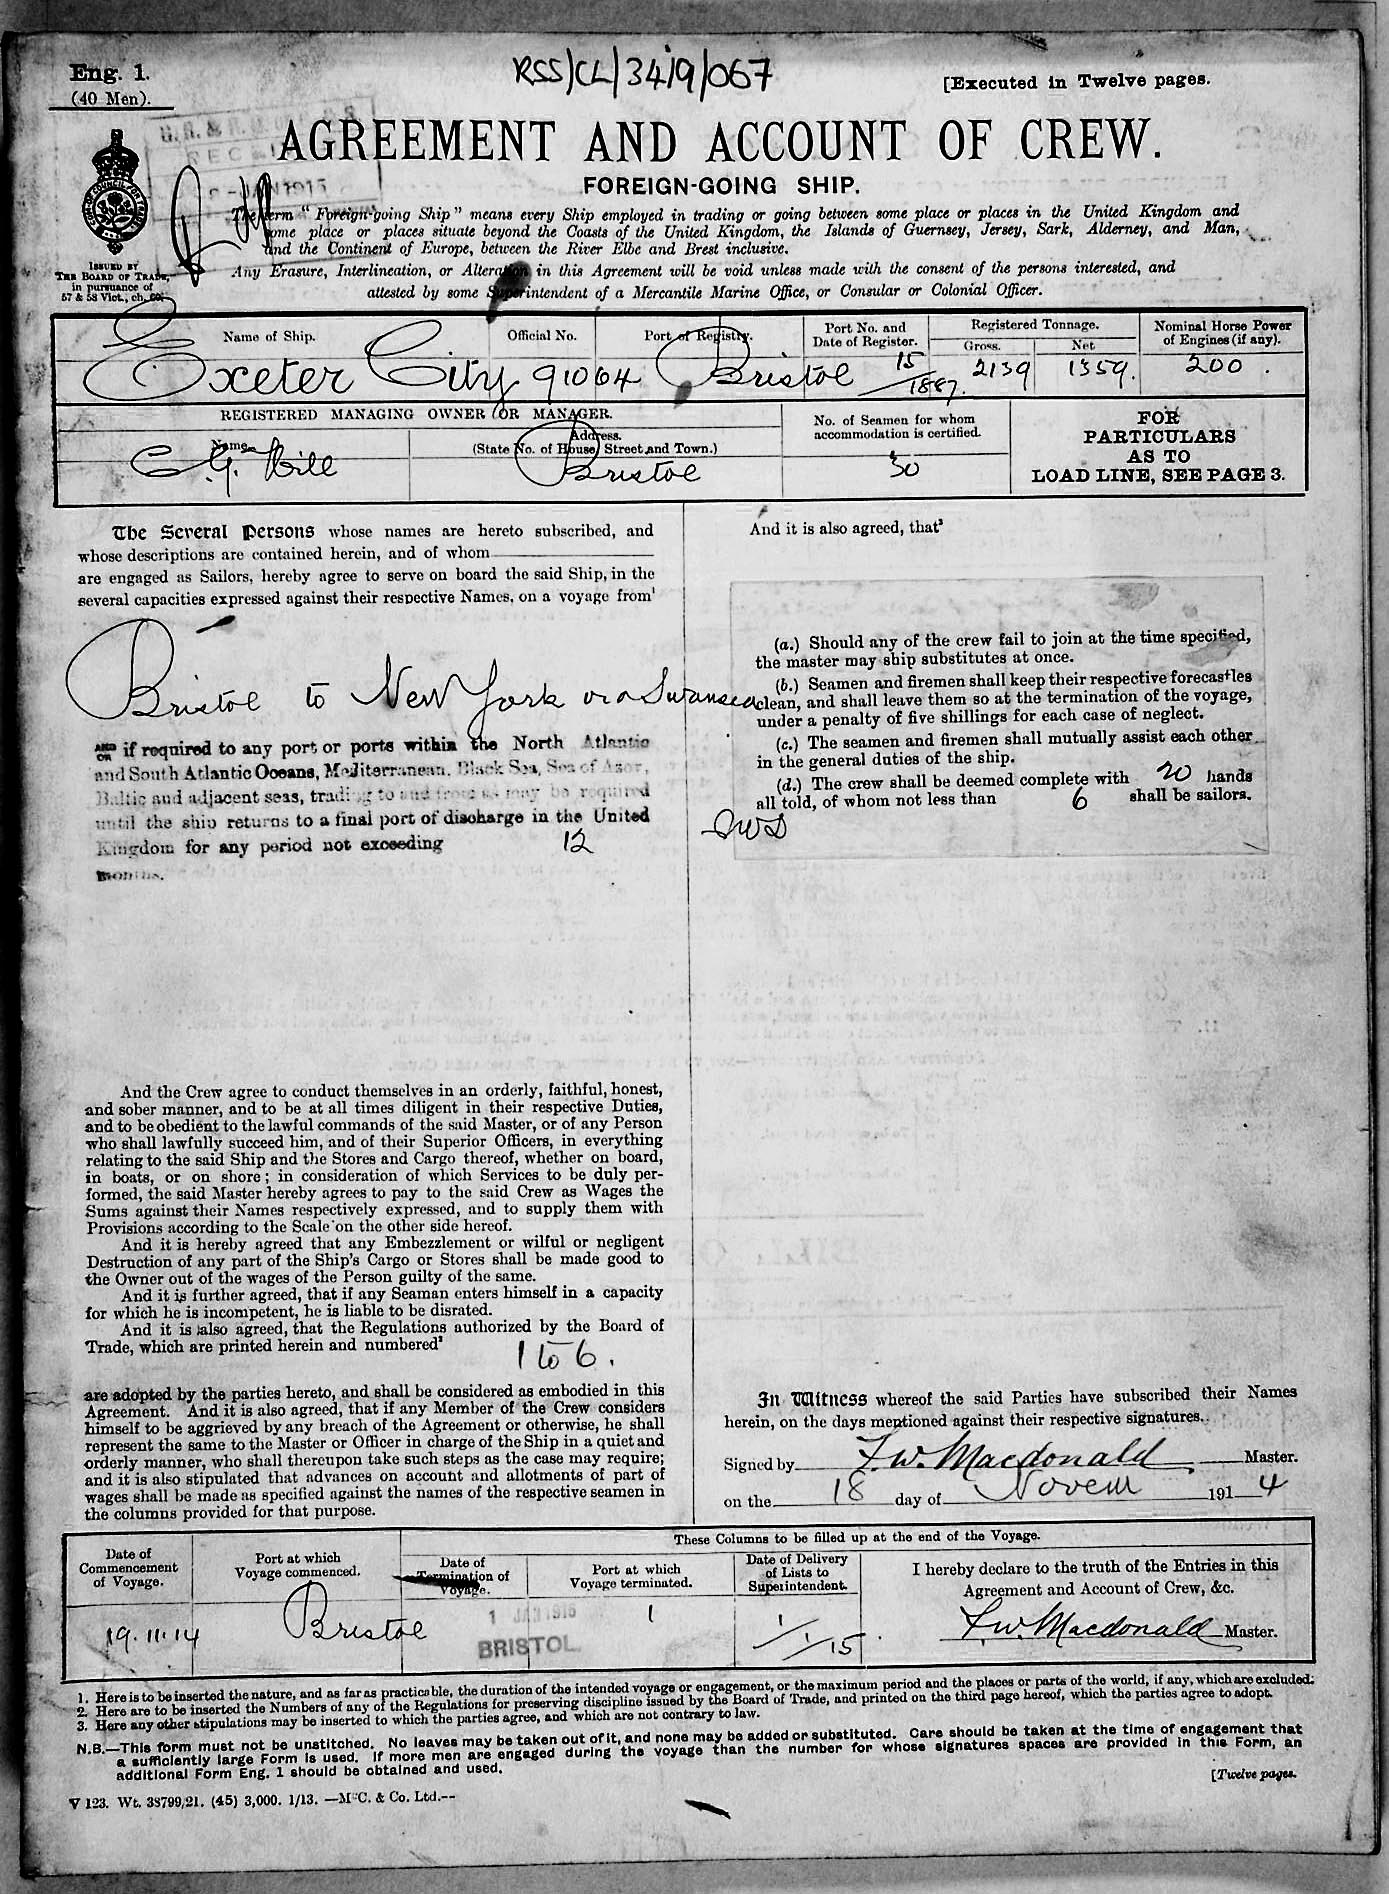 Eng. 1.
(40 Men).
RSS/CL/34/9/067
[Executed in Twelve pages.
AGREEMENT AND ACCOUNT OF CREW.
FOREIGN-GOING SHIP.
ISSUED BY
THE BOARD OF TRADE,
in pursuance of
57 & 58 Vict., ch. 60.
The term "Foreign-going Ship" means every Ship employed in trading or going between some place or places in the United Kingdom and
some place or places situate beyond the Coasts of the United Kingdom, the Islands of Guernsey, Jersey, Sark, Alderney, and Man,
and the Continent of Europe, between the River Elbe and Brest inclusive.
Any Erasure, Interlineation, or Alteration in this Agreement will be void unless made with the consent of the persons interested, and
attested by some Superintendent of a Mercantile Marine Office, or Consular or Colonial Officer.
Name of Ship. Official No. Port of Registry. Port No. and Date of Register. Registered Tonnage. Gross. Net. Nominal Horse Power of Engines (if any).
Exeter City 91064 Bristol 15/1887. 2139 1359. 200.
REGISTERED MANAGING OWNER OR MANAGER.
Name. Address. (State No. of House, Street, and Town.)
No. of Seamen for whom accommodation is certified.
C G. Hill Bristol 30
FOR
PARTICULARS
AS TO
LOAD LINE, SEE PAGE 3.
The Several Persons whose names are hereto subscribed, and
whose descriptions are contained herein, and of whom
are engaged as Sailors, hereby agree to serve on board the said Ship, in the
several capacities expressed against their respective Names, on a voyage from¹
Bristol to New York via Swansea
AND OR if required to any port or ports within the North Atlantic
and South Atlantic Oceans, Mediterranean, Black Sea, Sea of Azor,
Baltic and adjacent seas, trading to and from as may be required
until the ship returns to a final port of discharge in the United
Kingdom for any period not exceeding 12
months.
And the Crew agree to conduct themselves in an orderly, faithful, honest,
and sober manner, and to be at all times diligent in their respective Duties,
and to be obedient to the lawful commands of the said Master, or of any Person
who shall lawfully succeed him, and of their Superior Officers, in everything
relating to the said Ship and the Stores and Cargo thereof, whether on board,
in boats, or on shore; in consideration of which Services to be duly per-
formed, the said Master hereby agrees to pay to the said Crew as Wages the
Sums against their Names respectively expressed, and to supply them with
Provisions according to the Scale on the other side hereof.
And it is hereby agreed that any Embezzlement or wilful or negligent
Destruction of any part of the Ship's Cargo or Stores shall be made good to
the Owner out of the wages of the Person guilty of the same.
And it is further agreed, that if any Seaman enters himself in a capacity
for which he is incompetent, he is liable to be disrated.
And it is also agreed, that the Regulations authorized by the Board of
Trade, which are printed herein and numbered²
1 to 6.
are adopted by the parties hereto, and shall be considered as embodied in this
Agreement. And it is also agreed, that if any Member of the Crew considers
himself to be aggrieved by any breach of the Agreement or otherwise, he shall
represent the same to the Master or Officer in charge of the Ship in a quiet and
orderly manner, who shall thereupon take such steps as the case may require;
and it is also stipulated that advances on account and allotments of part of
wages shall be made as specified against the names of the respective seamen in
the columns provided for that purpose.
And it is also agreed, that³
(a.) Should any of the crew fail to join at the time specified,
the master may ship substitutes at once.
(b.) Seamen and firemen shall keep their respective forecastles
clean, and shall leave them so at the termination of the voyage,
under a penalty of five shillings for each case of neglect.
(c.) The seamen and firemen shall mutually assist each other
in the general duties of the ship.
(d.) The crew shall be deemed complete with 20 hands
all told, of whom not less than 6 shall be sailors.
In Witness whereof the said Parties have subscribed their Names
herein, on the days mentioned against their respective signatures.
Signed by F. W. Macdonald Master.
on the 18 day of Novem 1914
These Columns to be filled up at the end of the Voyage.
Date of Commencement of Voyage. Port at which Voyage commenced. Date of Termination of Voyage. Port at which Voyage terminated. Date of Delivery of Lists to Superintendent.
I hereby declare to the truth of the Entries in this
Agreement and Account of Crew, &c.
19.11.14 Bristol 1 JAN 1915 BRISTOL 1/1/15. F. W. Macdonald Master.
1. Here is to be inserted the nature, and as far as practicable, the duration of the intended voyage or engagement, or the maximum period and the places or parts of the world, if any, which are excluded.
2. Here are to be inserted the Numbers of any of the Regulations for preserving discipline issued by the Board of Trade, and printed on the third page hereof, which the parties agree to adopt.
3. Here any other stipulations may be inserted to which the parties agree, and which are not contrary to law.
N.B.—This form must not be unstitched. No leaves may be taken out of it, and none may be added or substituted. Care should be taken at the time of engagement that
a sufficiently large Form is used. If more men are engaged during the voyage than the number for whose signatures spaces are provided in this Form, an
additional Form Eng. 1 should be obtained and used.
[Twelve pages.
V 123. Wt. 38799/21. (45) 3,000. 1/13. —McC. & Co. Ltd.--